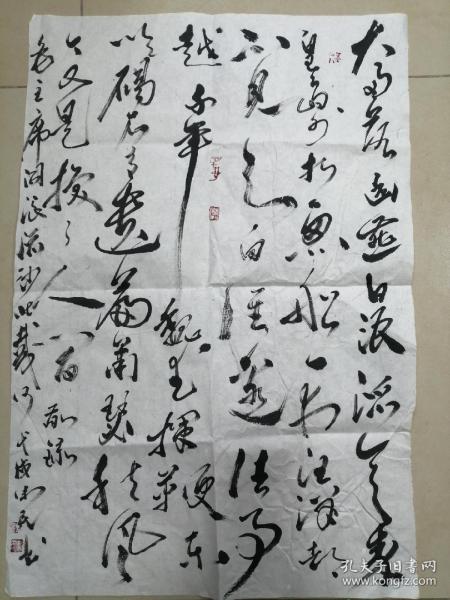 大雨落幽燕白浪滔天秦
皇岛外打鱼船一片汪洋都
不见知向谁边往事
越千年
魏武挥鞭东
临碣石有遗篇萧瑟秋风
今又是换了人间
敬录
毛主席词浪淘沙北戴河 戊戌 书
孔夫子旧书网
www.kongfz.com